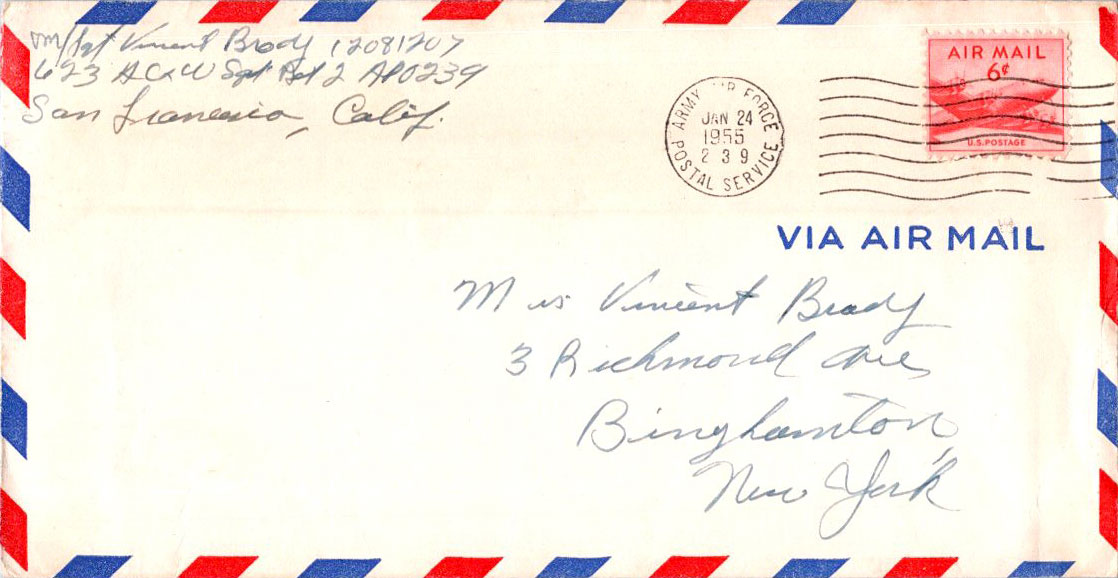 M/Sgt Vincent Brody 12081207
623 AC&W Sqd Det 2 APO239
San Francisco, Calif.
ARMY AIR FORCE
JAN 24
1955
239
POSTAL SERVICE
AIR MAIL
6¢
U.S. POSTAGE
VIA AIR MAIL
Mrs Vincent Brody
3 Richmond Ave
Binghamton,
New York